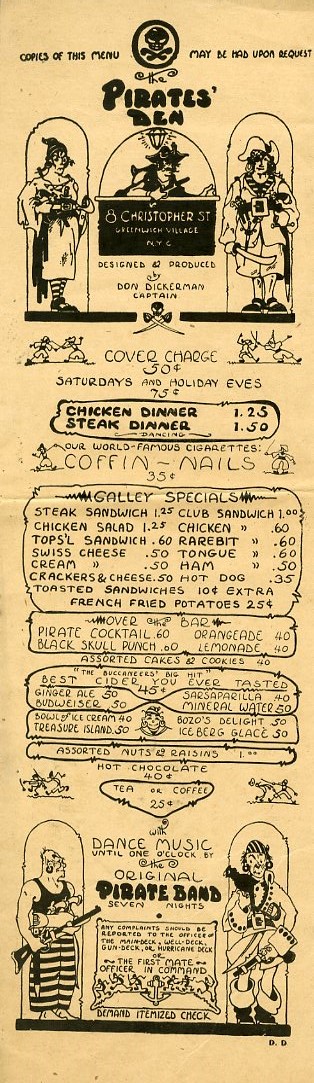 COPIES OF THIS MENU MAY BE HAD UPON REQUEST
the
PIRATES'
DEN
8 CHRISTOPHER ST
GREENWICH VILLAGE
N.Y.C
DESIGNED & PRODUCED
by
DON DICKERMAN
CAPTAIN
COVER CHARGE
50¢
SATURDAYS AND HOLIDAY EVES
75¢
CHICKEN DINNER 1.25
STEAK DINNER 1.50
DANCING
OUR WORLD-FAMOUS CIGARETTES:
COFFIN-NAILS
35¢
GALLEY SPECIALS
STEAK SANDWICH 1.25 CLUB SANDWICH 1.00
CHICKEN SALAD 1.25 CHICKEN " .60
TOPS'L SANDWICH .60 RAREBIT " .60
SWISS CHEESE .50 TONGUE " .60
CREAM " .50 HAM " .50
CRACKERS & CHEESE .50 HOT DOG .35
TOASTED SANDWICHES 10¢ EXTRA
FRENCH FRIED POTATOES 25¢
OVER the BAR
PIRATE COCKTAIL .60 ORANGEADE 40
BLACK SKULL PUNCH .60 LEMONADE 40
ASSORTED CAKES & COOKIES 40
"THE BUCCANEERS' BIG HIT"
BEST CIDER YOU EVER TASTED
45¢
GINGER ALE 50 SARSAPARILLA 40
BUDWEISER 50 MINERAL WATER 50
BOWL OF ICE CREAM 40 BOZO'S DELIGHT 50
TREASURE ISLAND .50 ICEBERG GLACÉ 50
ASSORTED NUTS & RAISINS 1.00
HOT CHOCOLATE
40¢
TEA OR COFFEE
25¢
with
DANCE MUSIC
UNTIL ONE O'CLOCK BY
the
ORIGINAL
PIRATE BAND
SEVEN NIGHTS
ANY COMPLAINTS SHOULD BE
REPORTED TO THE OFFICER OF
THE MAIN-DECK, WELL-DECK,
GUN-DECK, OR HURRICANE DECK
OR
THE FIRST MATE
OFFICER IN COMMAND
DEMAND ITEMIZED CHECK
D. D